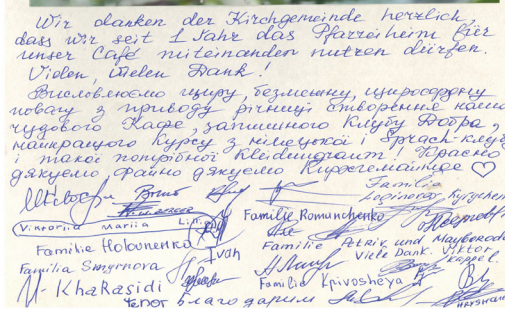 Wir danken der Kirchgemeinde herzlich,
dass wir seit 1 Jahr das Pfarreiheim für
unser Café miteinanden nutzen dürfen.
Vielen, vielen Dank!
Висловлюємо щиру, безмежну, щиросердну
повагу з приводу річниці створення нашо
чудового Кафе, затишного Клубу Добра,
найкращого Курсу з німецької і Sprach-клуб
і такої потрібної Kleidungraum! Красно
дякуємо, файно дякуємо Кірхгемайнде ♡
Familie
Loginova
Viktoriia Mariia
Familie Romanchenko
Familie Holovnenko
Ivan
Familie Petriv und Mayboroda
Familia Smyrnova
Viele Dank. Viktor
Kappel.
KhaRasidi
Familie Krivosheya
tenor Благодарим